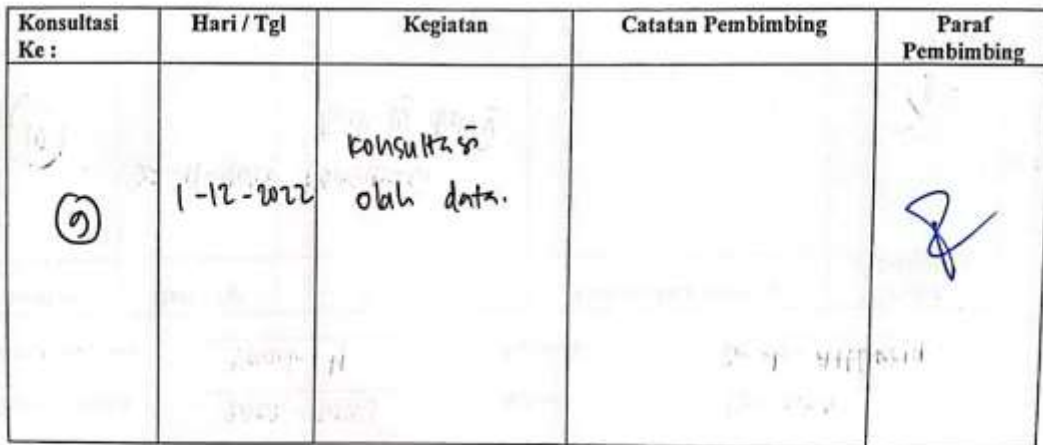 Konsultasi Ke :
Hari / Tgl
Kegiatan
Catatan Pembimbing
Paraf Pembimbing
9
1-12-2022
konsultasi
olah data.